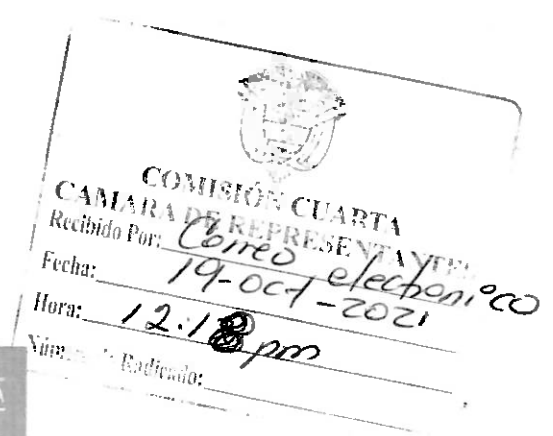 COMISIÓN CUARTA
CAMARA DE REPRESENTANTES
Recibido Por: Correo electronico
Fecha: 19-oct-2021
Hora: 12:18 pm
Radicado:
A